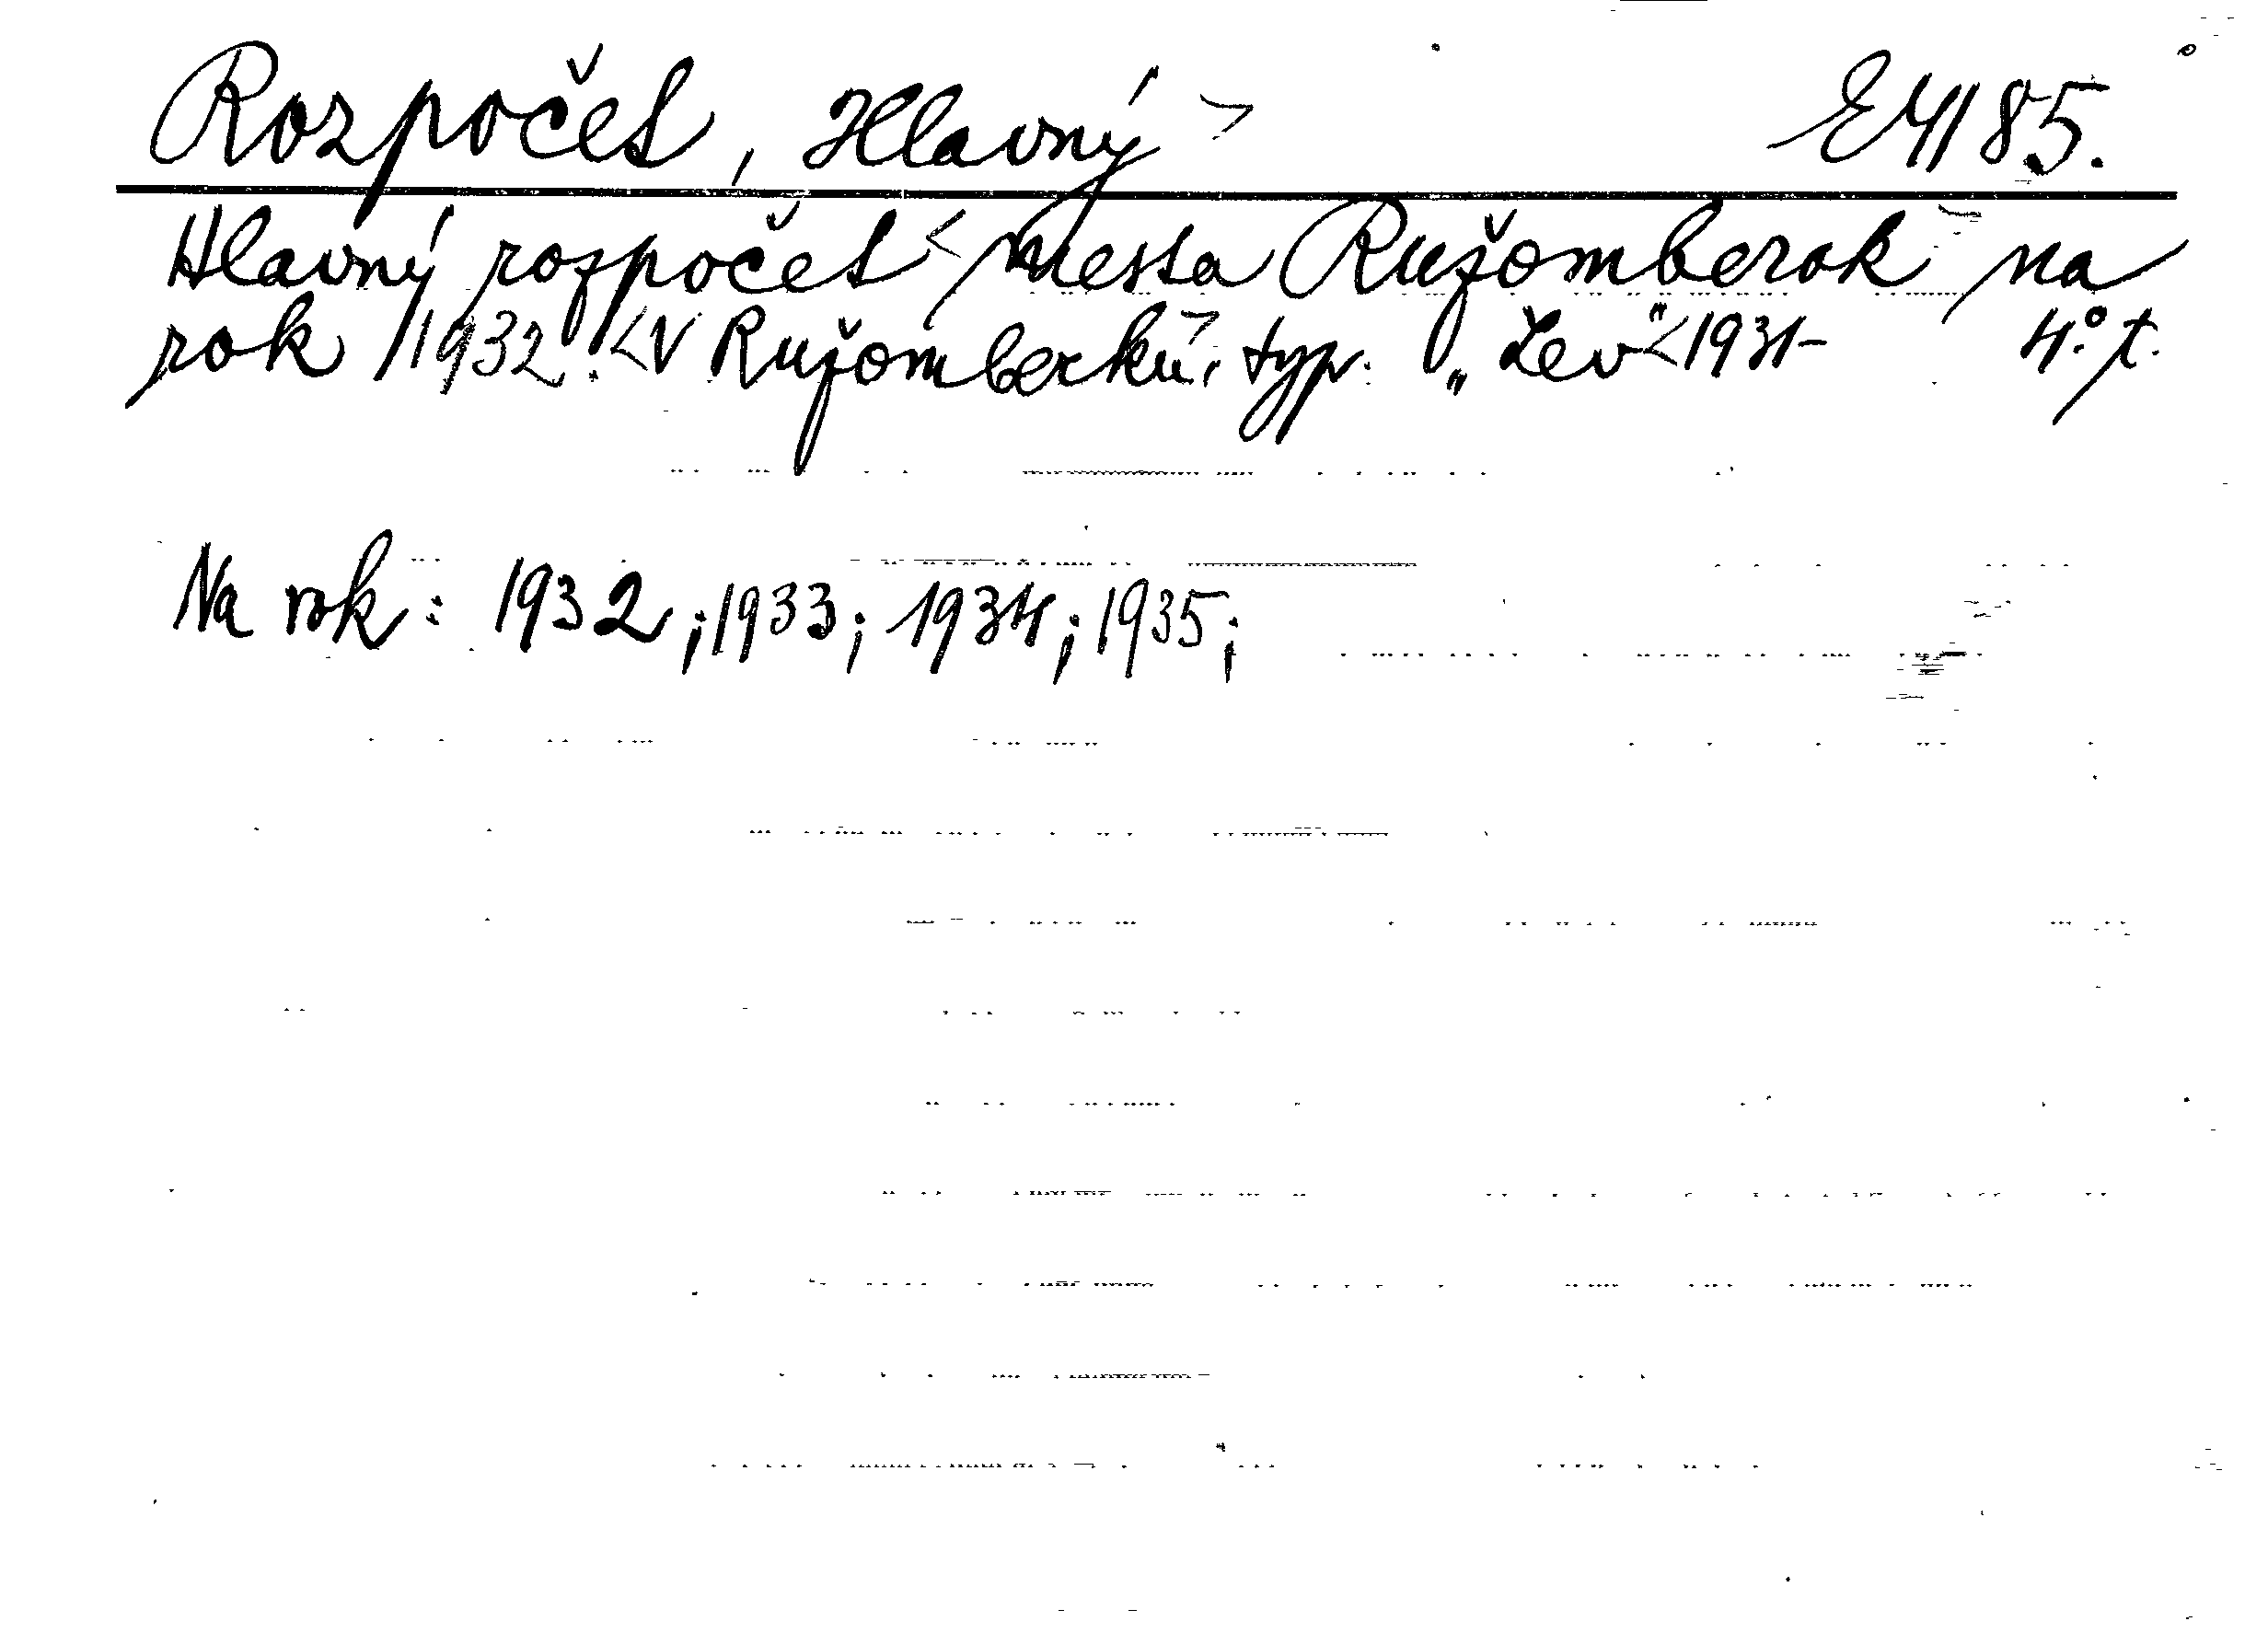 Rozpočet, Hlavný > E4185.
Hlavný rozpočet < mesta Ružomberok > na
rok 1932. < V Ružomberku >, typ. „Lev“ < 1931- 4.° t.
Na rok: 1932; 1933; 1934; 1935;